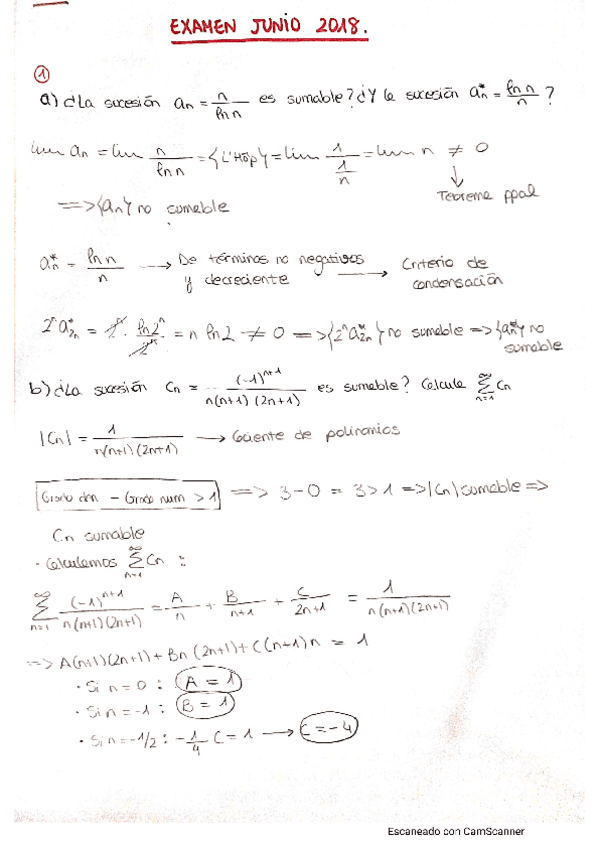 EXAMEN JUNIO 2018.
①
a) ¿La sucesión an = n / ln n es sumable? ¿Y la sucesión an* = ln n / n ?
lim an = lim n / ln n = {L'Hôp} = lim 1 / (1/n) = lim n ≠ 0
↓
Teorema ppal
=> {an} no sumable
an* = ln n / n → De términos no negativos y decreciente → Criterio de condensación
2ⁿ a*2ⁿ = 2ⁿ · ln 2ⁿ / 2ⁿ = n ln 2 ≠ 0 => {2ⁿ a*2ⁿ} no sumable => {an*} no sumable
b) ¿La sucesión Cn = (-1)ⁿ⁺¹ / n(n+1)(2n+1) es sumable? Calcule ∞Σn=1 Cn
|Cn| = 1 / n(n+1)(2n+1) → Cociente de polinomios
Grado den - Grado num > 1 => 3 - 0 = 3 > 1 => |Cn| sumable =>
Cn sumable
· Calculemos ∞Σn=1 Cn :
∞Σn=1 (-1)ⁿ⁺¹ / n(n+1)(2n+1) = A/n + B/n+1 + C/2n+1 = 1 / n(n+1)(2n+1)
=> A(n+1)(2n+1) + Bn(2n+1) + C(n+1)n = 1
· Si n=0 : A = 1
· Si n=-1 : B = 1
· Si n=-1/2 : -1/4 C = 1 → C = -4
Escaneado con CamScanner